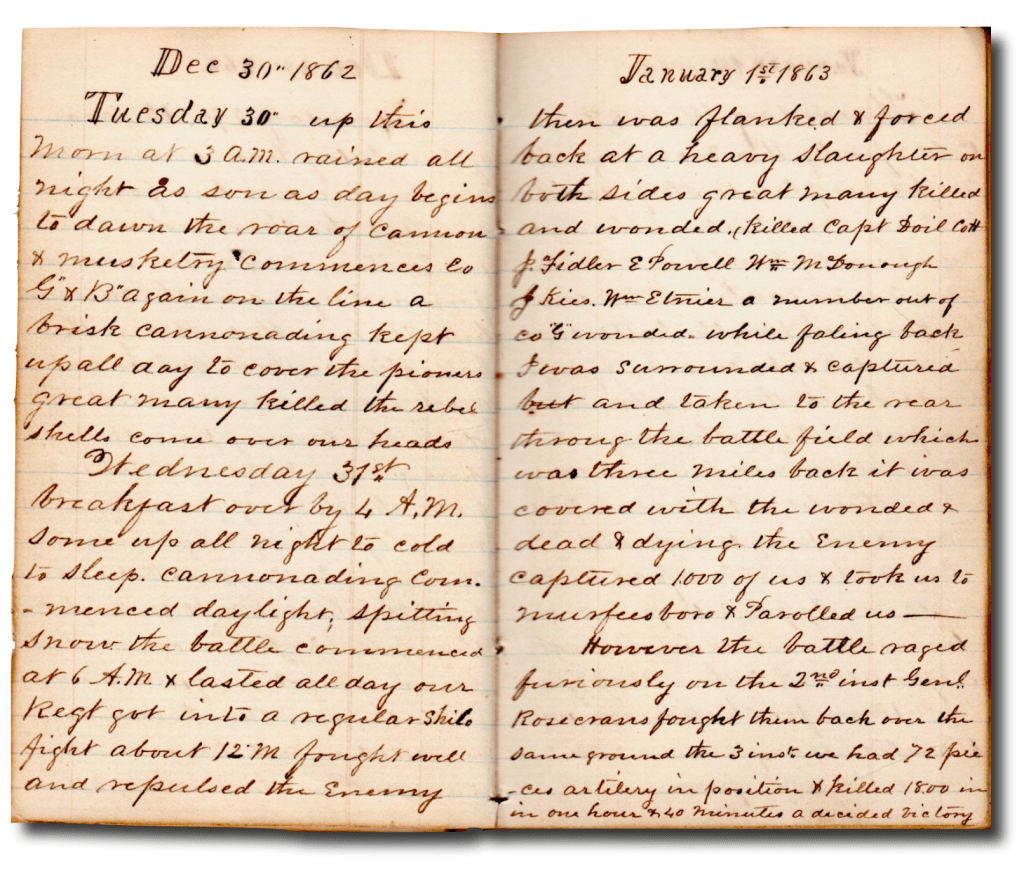 Dec 30" 1862
Tuesday 30" up this
morn at 3 A.M. rained all
night as son as day begins
to dawn the roar of cannon
& musketry commences Co
G" & B" again on the line a
brisk cannonading kept
up all day to cover the pioners
great many killed the rebel
shells come over our heads
Wednesday 31st
breakfast over by 4 A.M.
some up all night to cold
to sleep. cannonading com.
-menced daylight; spitting
snow the battle commenced
at 6 A.M & lasted all day our
Regt got into a regular Shilo
fight about 12 M fought well
and repulsed the Enemy
January 1st 1863
then was flanked & forced
back at a heavy slaughter on
both sides great many killed
and wonded. (killed Capt Doil CoH
J. Fidler E Powell Wm McDonough
J Kies. Wm Etnier a number out of
co "G" wonded. while faling back
I was surrounded & captured
but and taken to the rear
throug the battle field which
was three miles back it was
covered with the wonded &
dead & dying. the Enemy
captured 1.000 of us & took us to
murfeesboro & Parolled us —
However the battle raged
furiously on the 2nd inst Genl.
Rosecrans fought them back over the
same ground the 3 inst. we had 72 pie
-ces artilery in position & killed 1800 in
in one hour & 40 minutes a decided victory